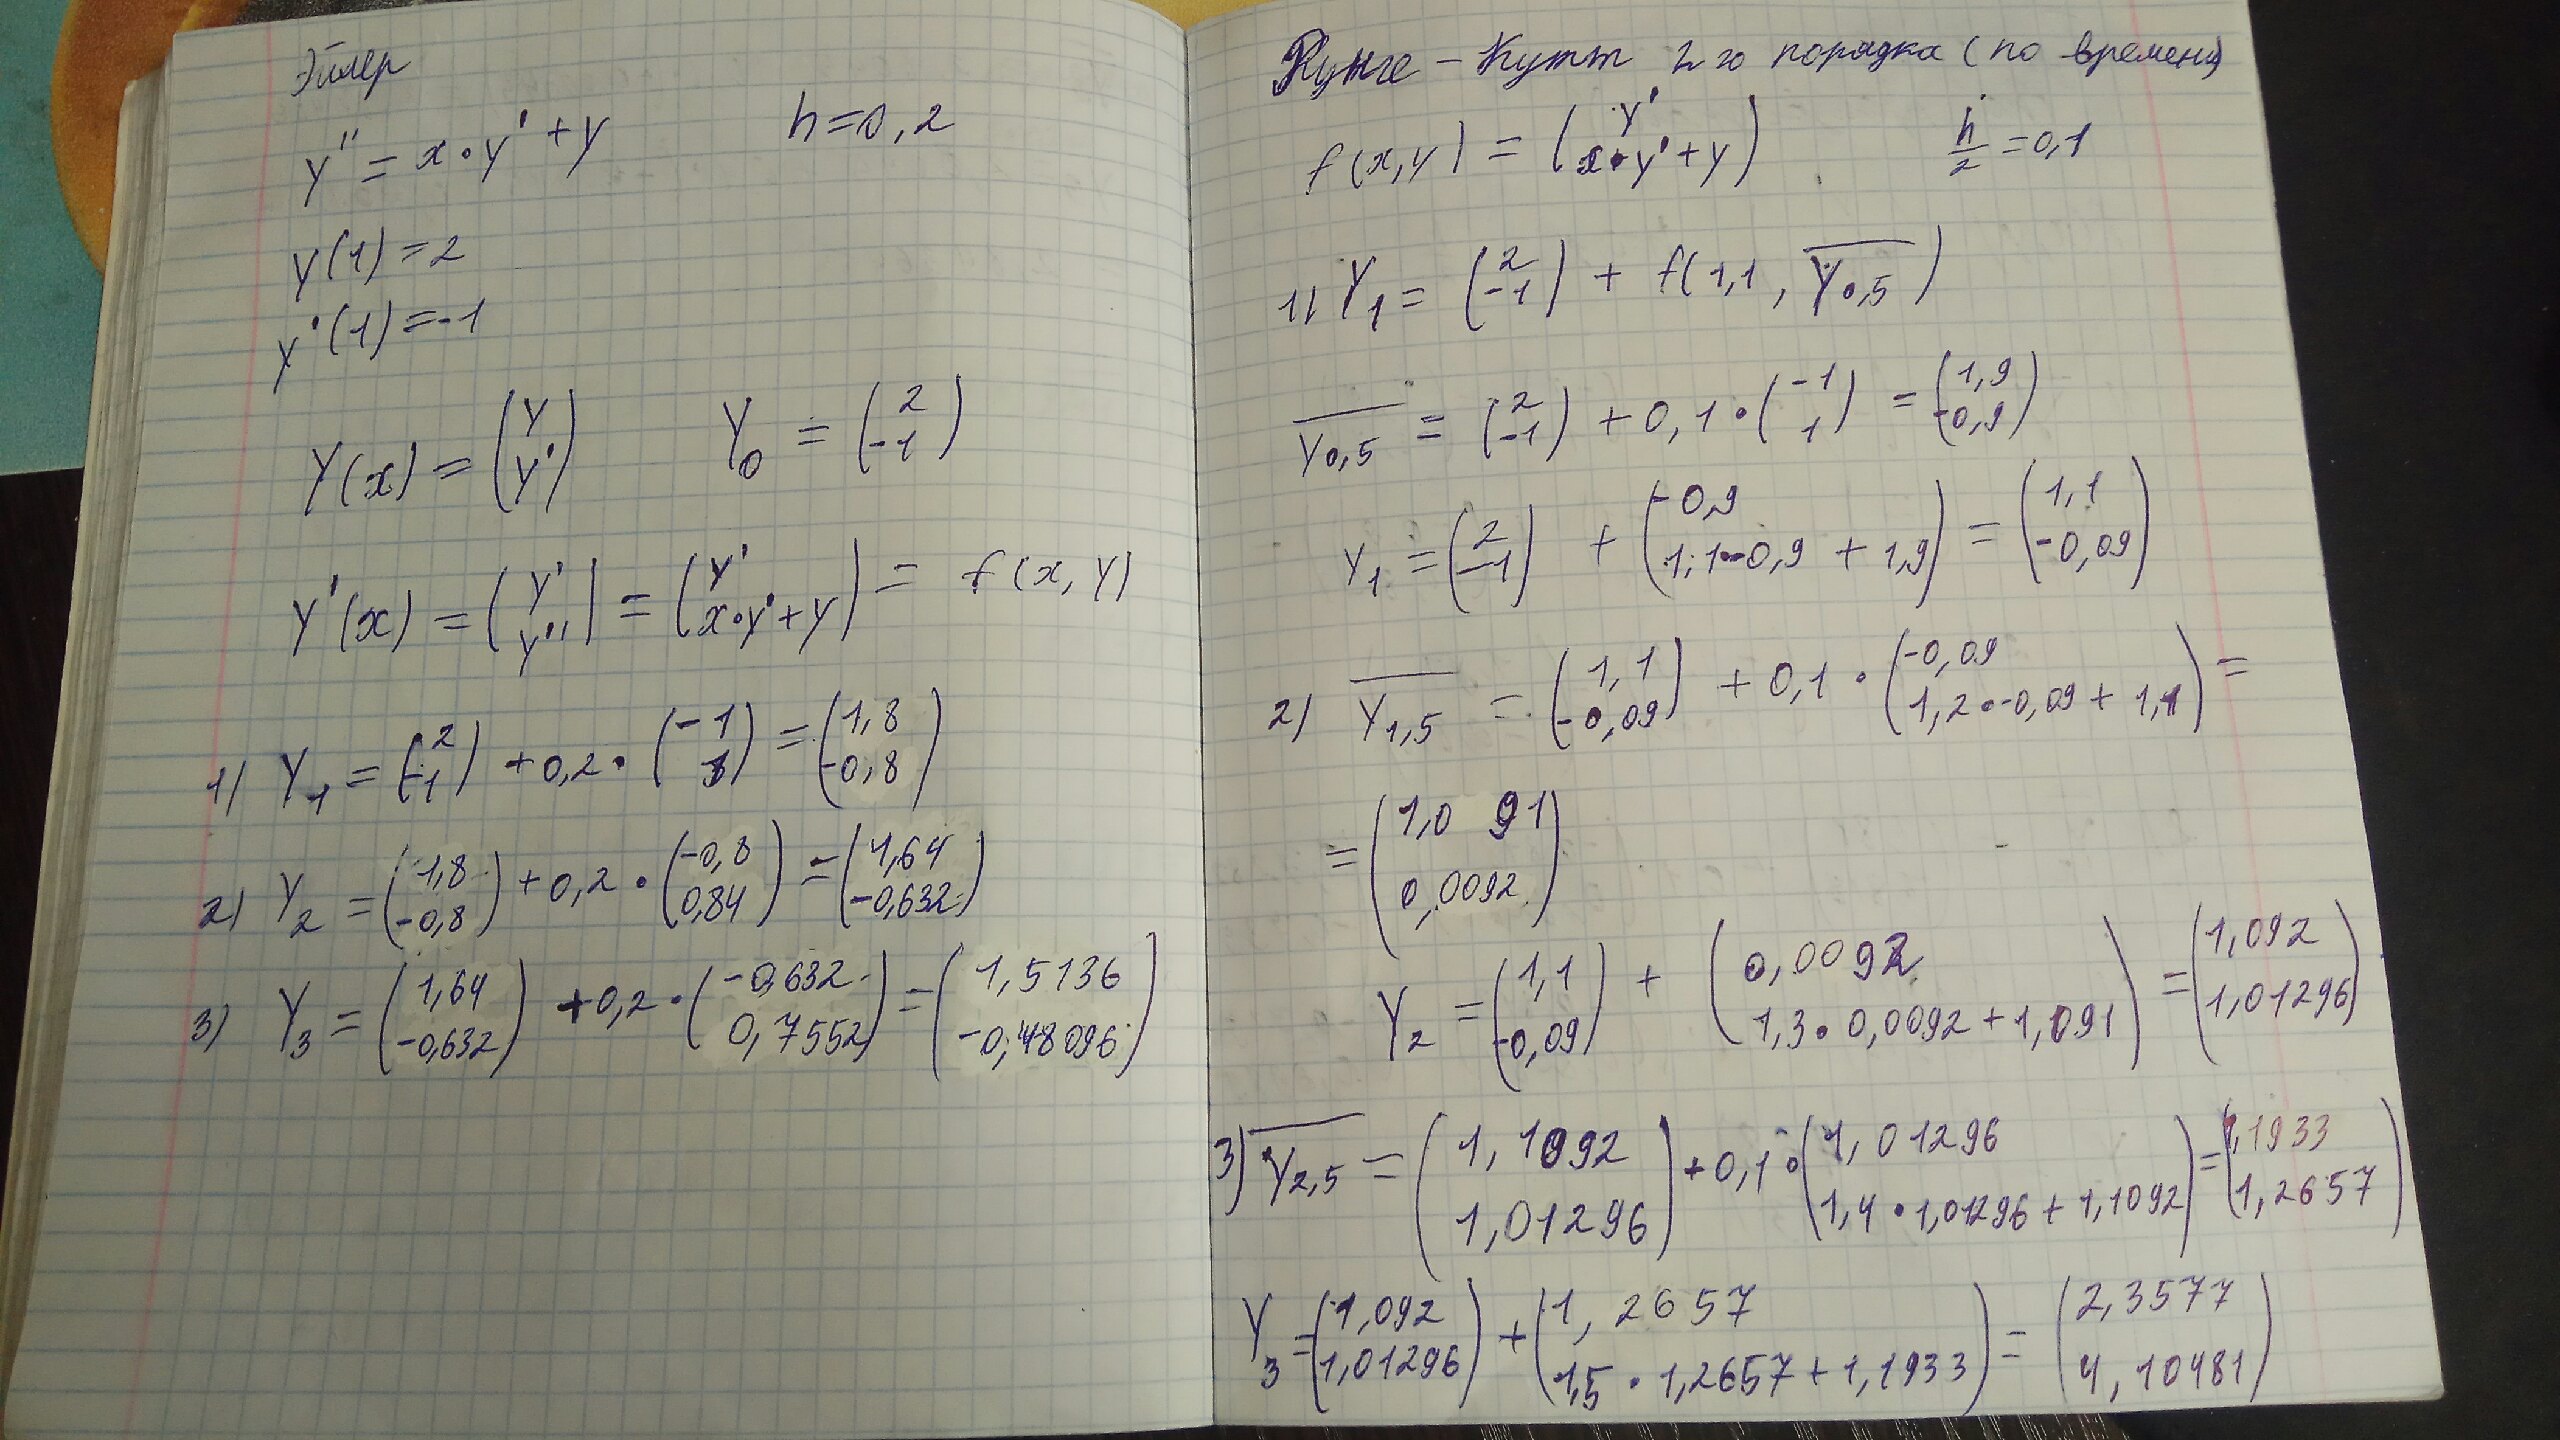 Эйлер
y'' = x·y' + y h=0,2
y(1)=2
y'(1)=-1
Y(x) = (y y') Y0 = (2 -1)
Y'(x) = (y' y'') = (y' x·y'+y) = f(x, Y)
1) Y1 = (2 -1) + 0,2·(-1 1) = (1,8 -0,8)
2) Y2 = (1,8 -0,8) + 0,2·(-0,8 0,84) = (1,64 -0,632)
3) Y3 = (1,64 -0,632) + 0,2·(-0,632 0,7552) = (1,5136 -0,48096)
Рунге - Кутт 2го порядка (по времени)
f(x,y) = (y' x·y'+y) h/2 = 0,1
1) Y1 = (2 -1) + f(1,1, Y0,5)
Y0,5 = (2 -1) + 0,1·(-1 1) = (1,9 -0,9)
Y1 = (2 -1) + (-0,9 1,1·-0,9 + 1,9) = (1,1 -0,09)
2) Y1,5 = (1,1 -0,09) + 0,1·(-0,09 1,2·-0,09 + 1,1) =
= (1,091 0,0092)
Y2 = (1,1 -0,09) + (0,0092 1,3·0,0092+1,091) = (1,092 1,01296)
3) Y2,5 = (1,1092 1,01296) + 0,1·(1,01296 1,4·1,01296 + 1,1092) = (1,1933 1,2657)
Y3 = (1,092 1,01296) + (1,2657 1,5·1,2657 + 1,1933) = (2,3577 4,10481)